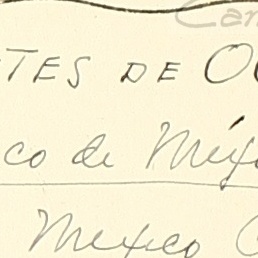 Can
TES DE O
co de Méx
Mexico C